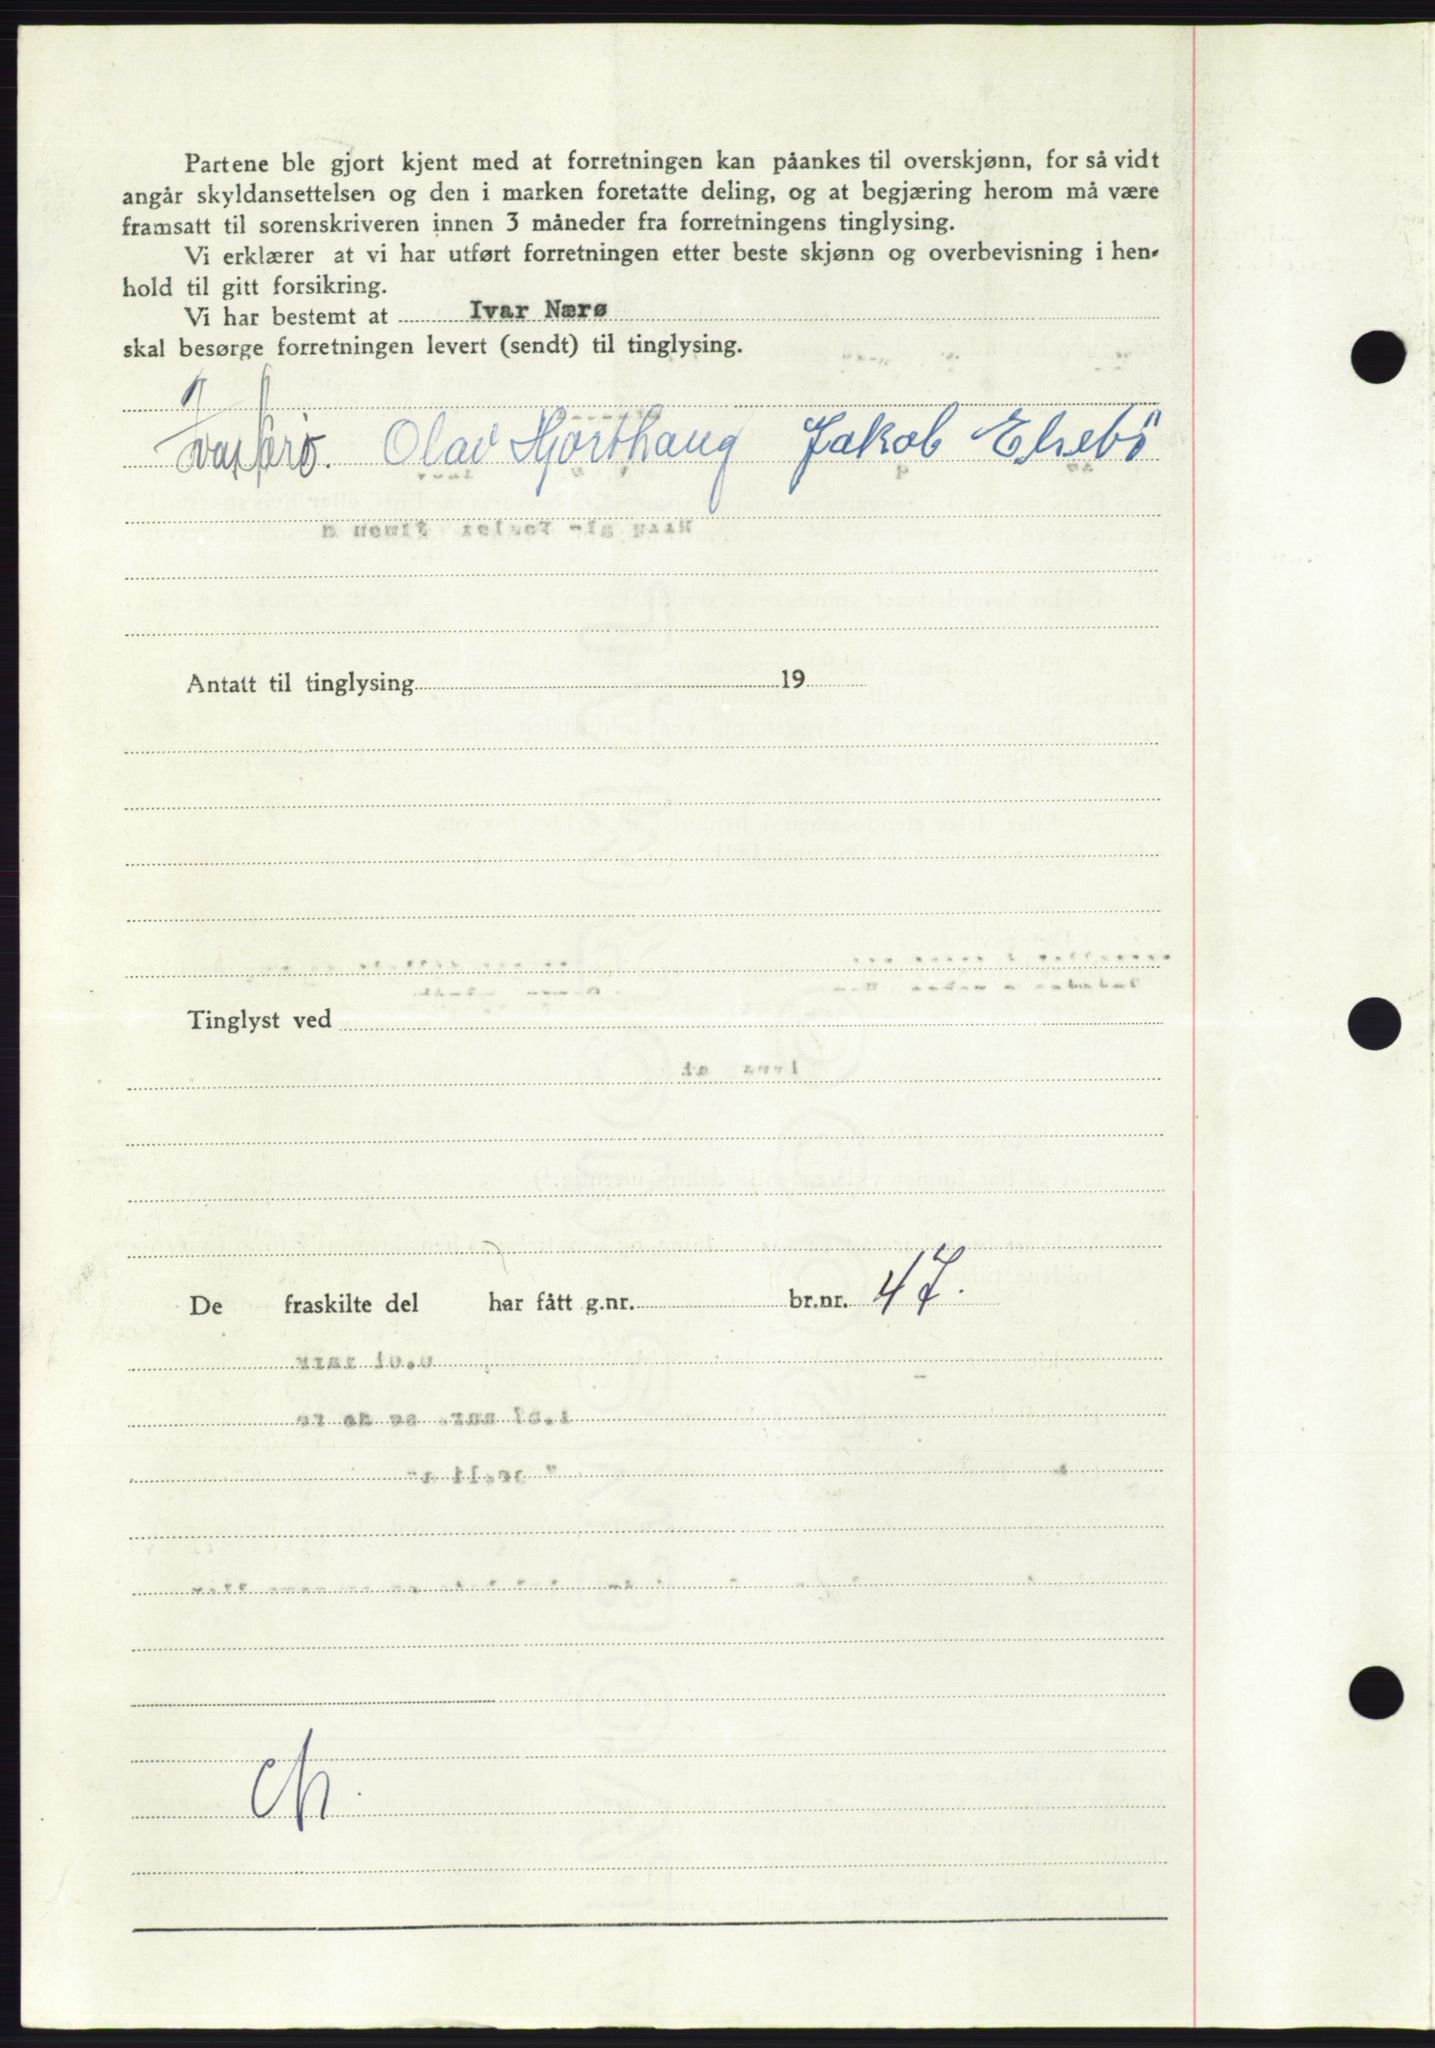 Partene ble gjort kjent med at forretningen kan påankes til overskjønn, for så vidt
angår skyldansettelsen og den i marken foretatte deling, og at begjæring herom må være
framsatt til sorenskriveren innen 3 måneder fra forretningens tinglysing.
Vi erklærer at vi har utført forretningen etter beste skjønn og overbevisning i hen-
hold til gitt forsikring.
Vi har bestemt at Ivar Nærø
skal besørge forretningen levert (sendt) til tinglysing.
Ivar Nærø. Olav Hjorthaug Jakob Elsebö
Antatt til tinglysing 19
Tinglyst ved
De fraskilte del har fått g.nr. br.nr. 47.